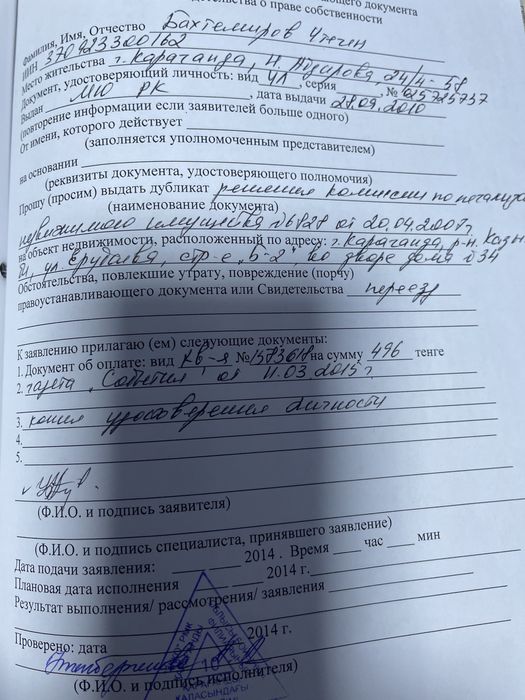 ющего документа
детельства о праве собственности
Фамилия, Имя, Отчество Бахтемиров
ИИН 370923300162
Место жительства г. Караганда, 24/4-58
Документ, удостоверяющий личность: вид УЛ, серия, № 015725737
Выдан МЮ РК, дата выдачи 28.09.2010
(повторение информации если заявителей больше одного)
От имени, которого действует
(заполняется уполномоченным представителем)
на основании
(реквизиты документа, удостоверяющего полномочия)
Прошу (просим) выдать дубликат решения комиссии по легализа
(наименование документа)
недвижимого имущества №6828 от 20.04.2007г.
на объект недвижимости, расположенный по адресу: г. Караганда, р-н. Казы
би, ул. Ерубаева, стр-е "Б-2" во дворе дома №34
Обстоятельства, повлекшие утрату, повреждение (порчу)
правоустанавливающего документа или Свидетельства переезд
К заявлению прилагаю (ем) следующие документы:
1. Документ об оплате: вид кв-я №1573618 на сумму 496 тенге
2. газета "События" от 11.03.2015г
3. копия удостоверения личности
4.
5.
(Ф.И.О. и подпись заявителя)
(Ф.И.О. и подпись специалиста, принявшего заявление)
Дата подачи заявления: 2014 . Время час мин
Плановая дата исполнения 2014 г.
Результат выполнения/ рассмотрения/ заявления
Проверено: дата 2014 г.
(Ф.И.О. и подпись исполнителя)